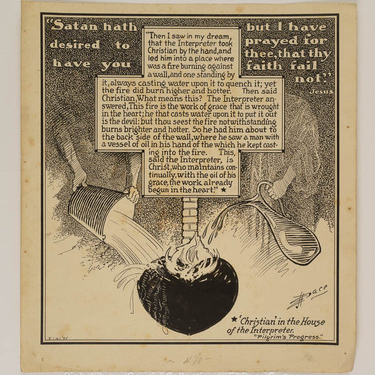 "Satan hath
desired to
have you
but I have
prayed for
thee, that thy
faith fail
not."
Jesus
"Then I saw in my dream,
that the Interpreter took
Christian by the hand, and
led him into a place where
was a fire burning against
a wall, and one standing by
it, always casting water upon it to quench it; yet
the fire did burn higher and hotter. Then said
Christian, What means this? The Interpreter an-
swered, This fire is the work of grace that is wrought
in the heart; he that casts water upon it to put it out
is the devil: but thou seest the fire notwithstanding
burns brighter and hotter. So he had him about to
the back side of the wall, where he saw a man with
a vessel of oil in his hand of the which he kept cast-
ing into the fire. This,
said the Interpreter, is
Christ, who maintains con-
tinually, with the oil of his
grace, the work already
begun in the heart." ★
EJ Pace
★ 'Christian' in the House
of the Interpreter.
"Pilgrim's Progress."